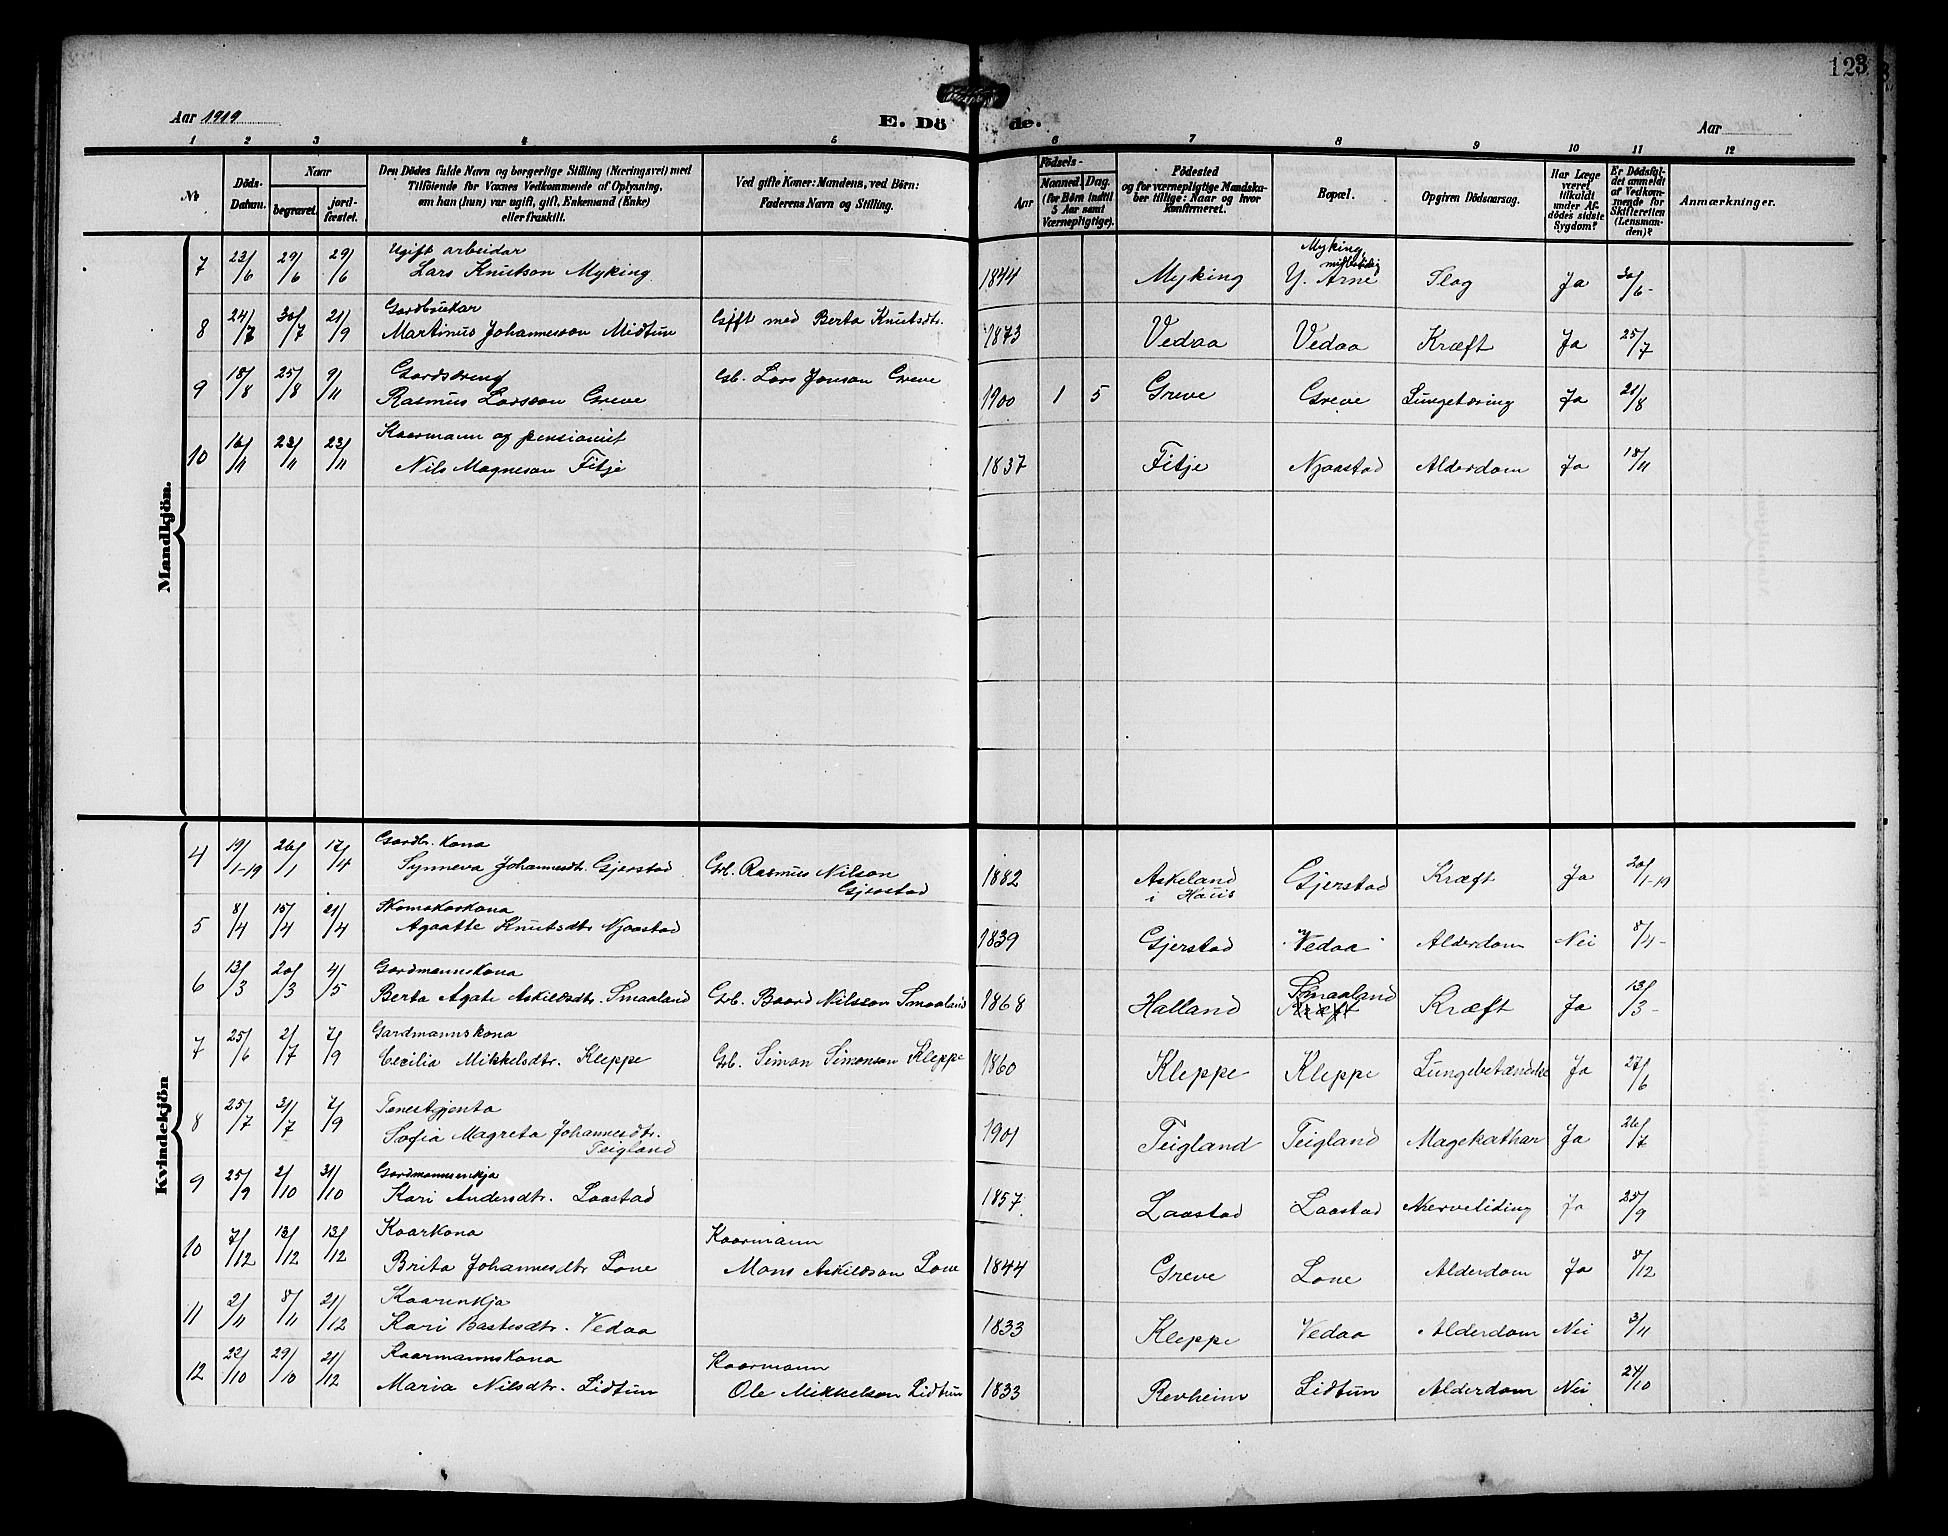 123
Aar 1919
E. Dö de.
Aar
1 2 3 4 5 6 7 8 9 10 11 12
No
Döds-Datum.
Naar
begravet.
jord-fæstet.
Den Dödes fulde Navn og borgerlige Stilling (Næringsvei) med
Tilföiende for Voxnes Vedkommende af Oplysning,
om han (hun) var ugift, gift, Enkemand (Enke)
eller fraskilt.
Ved gifte Koner: Mandens, ved Börn:
Faderens Navn og Stilling.
Födsels-
Aar
Maaned. Dag.
(for Börn indtil
5 Aar samt
Værnepligtige).
Födested
og for værnepligtige Mandska-
ber tillige: Naar og hvor
Konfirmeret.
Bopæl.
Opgiven Dödsaarsag.
Har Læge
været
tilkaldt
under Af-
dödes sidste
Sygdom?
Er Dödsfal-
det anmeldt
af Vedkom-
mende for
Skifteretten
(Lensman-
den)?
Anmærkninger.
Mandkjön.
7 23/6 29/6 29/6 Ugift arbeidar
Lars Knutson Myking 1844 Myking Myking
Y. Arne Slag Ja 30/6-
8 24/7 30/7 21/9 Gardbrukar
Martinus Johannesson Midtun Gift med Berta Knutsdtr. 1873 Vedaa Vedaa Kræft Ja 25/7
9 18/8 25/8 9/11 Gardsdreng
Rasmus Larsson Greve Gb. Lars Jonson Greve 1900 1 5 Greve Greve Lungetæring Ja 21/8
10 16/11 23/11 23/11 Kaarmann og pensionist
Nils Magneson Fitje 1837 Fitje Njaastad Alderdom Ja 18/11
Kvindekjön
4 19/1-19 26/1 17/4 Gardbr. kona
Synneva Johannesdtr. Gjerstad Grb. Rasmus Nilson
Gjerstad 1882 Askeland
i Haus Gjerstad Kræft Ja 20/1-19
5 8/4 15/4 21/4 Skomakarkona
Agaatte Knutsdtr Njaastad 1839 Gjerstad Vedaa Alderdom Nei 8/4-
6 13/3 20/3 4/5 Gardmannskona
Berta Agate Askildsdtr. Smaaland Grb. Baard Nilsson Smaaland 1868 Halland Smaaland
Kræft Kræft Ja 13/3-
7 25/6 2/7 7/9 Gardmannskona
Cecilia Mikkelsdtr. Kleppe Grb. Simon Simonson Kleppe 1860 Kleppe Kleppe Lungebetændelse Ja 27/6
8 25/7 31/7 7/9 Tenestgjenta
Sofia Magreta Johannesdtr.
Teigland 1901 Teigland Teigland Magekathar Ja 26/7
9 25/9 2/10 31/10 Gardmannsenkja
Kari Andersdtr. Laastad 1857 Laastad Laastad Nerveliding Ja 25/9
10 7/12 13/12 13/12 Kaarkona
Brita Johannesdtr Lone Kaarmann
Mons Askildson Lone 1844 Greve Lone Alderdom Ja 8/12
11 2/11 8/11 21/12 Kaarenkja
Kari Bastesdtr. Vedaa 1833 Kleppe Vedaa Alderdom Nei 3/11
12 22/10 29/10 21/12 Kaarmannskona
Maria Nilsdtr. Lidtun Kaarmann
Ole Mikkelson Lidtun 1833 Revheim Lidtun Alderdom Nei 24/10